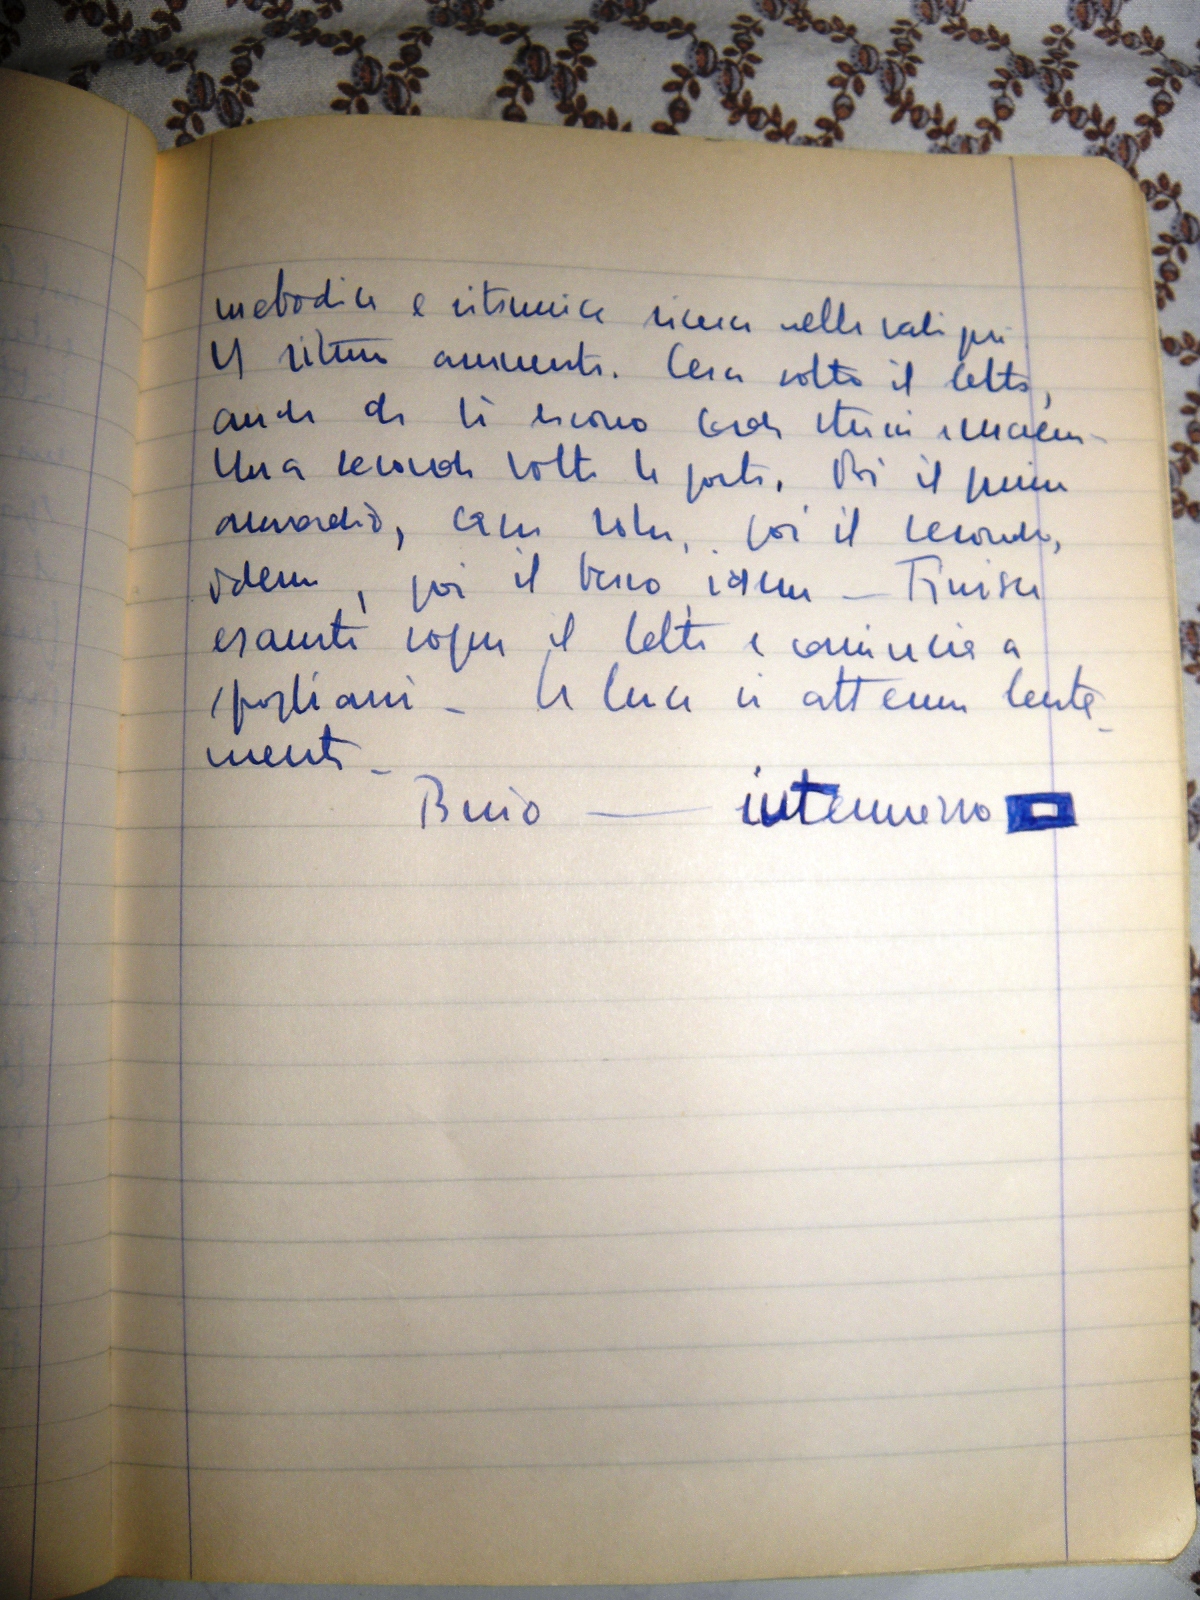 metodica e ritmica ricerca nelle
Il ritmo aumenta. Cerca sotto il letto,
anche da lì escono
Una seconda volta la porta. Poi il primo
armadio, come sopra, poi il secondo,
idem, poi il terzo, idem — Finisce
esausta sopra il letto e comincia a
spogliarsi - la luce si attenua lenta-
mente -
Buio — intermezzo